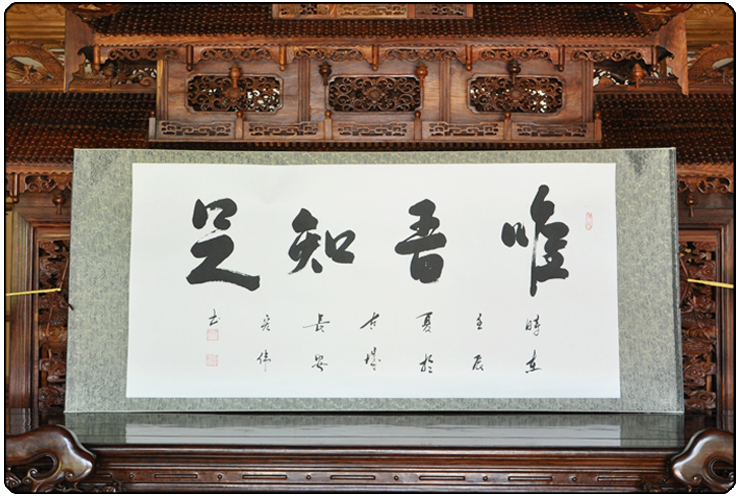 唯吾知足
時在
壬辰
夏於
古城
長安
宏偉
書